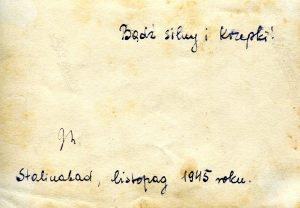 Bądź silny i krzepki!
Stalinabad, listopad 1945 roku.